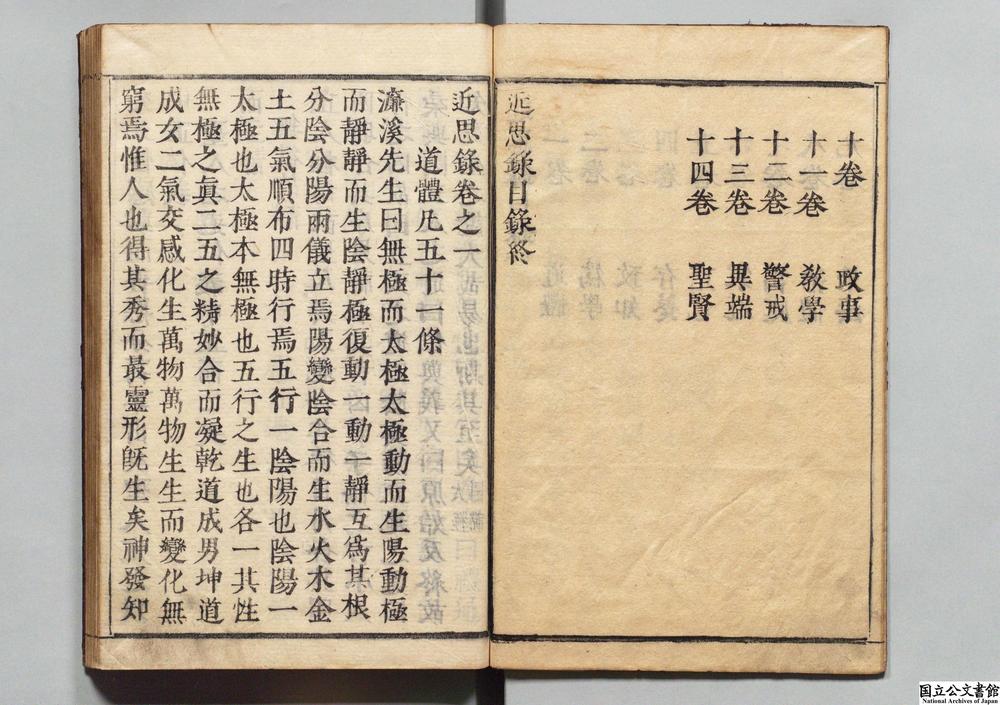 十卷　政事
十一卷　敎學
十二卷　警戒
十三卷　異端
十四卷　聖賢
近思錄目錄終
近思錄卷之一
道體凡五十一條
濂溪先生曰無極而太極太極動而生陽動極
而靜靜而生陰靜極復動一動一靜互爲其根
分陰分陽兩儀立焉陽變陰合而生水火木金
土五氣順布四時行焉五行一陰陽也陰陽一
太極也太極本無極也五行之生也各一其性
無極之眞二五之精妙合而凝乾道成男坤道
成女二氣交感化生萬物萬物生生而變化無
窮焉惟人也得其秀而最靈形旣生矣神發知
国立公文書館
National Archives of Japan